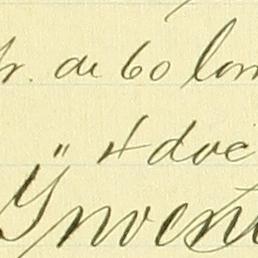 fr. de 60 lon
" 4 doc
Invent